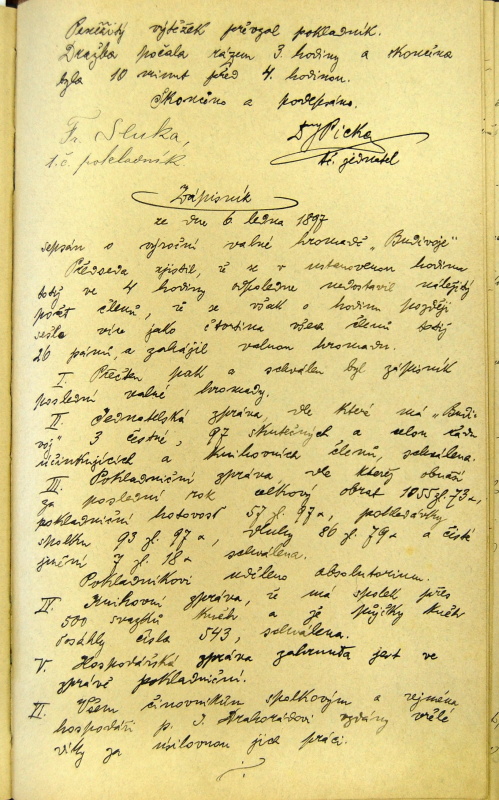 Peněžitý výtěžek převzal pokladník.
Dražba počala rázem 3. hodiny a skončena
byla 10 minut před 4. hodinou.
Skončeno a podepsáno.
Fr. Sluka,
t. č. pokladník
Picka
tč. jednatel
Zápisník
ze dne 6. ledna 1897
sepsán o výroční valné hromadě „Budivoje"
Předseda zjistil, že se v ustanovenou hodinu
totiž ve 4 hodiny odpoledne nedostavil náležitý
počet členů, že se však o hodinu později
sešla více jako čtvrtina všech členů totiž
26 pánů, a zahájil valnou hromadu.
I. Přečten pak a schválen byl zápisník
poslední valné hromady.
II. Jednatelská zpráva, dle které má „Budi-
voj" 3 čestné, 97 skutečných a celou řadu
účinkujících a knihovních členů, schválena.
III. Pokladniční zpráva, dle kterej obnáší
za poslední rok celkový obrat 1055 zl. 73 kr,
pokladniční hotovosť 57 zl. 97 kr, pohledávky
spolku 93 zl. 97 kr, dluhy 86 zl. 79 kr a čisté
jmění 7 zl. 18 kr schválena.
Pokladníkovi uděleno absolutorium.
IV. Knihovní zpráva, že má spolek přes
500 svazků knih a že půjčky knih
dosáhly čísla 543, schválena.
V. Hospodářská zpráva zahrnuta jest ve
zprávě pokladniční.
VI. Všem činovníkům spolkovým a zejména
hospodáři p. J. Drahorádovi vzdány vřelé
díky za úsilovnou jich práci.